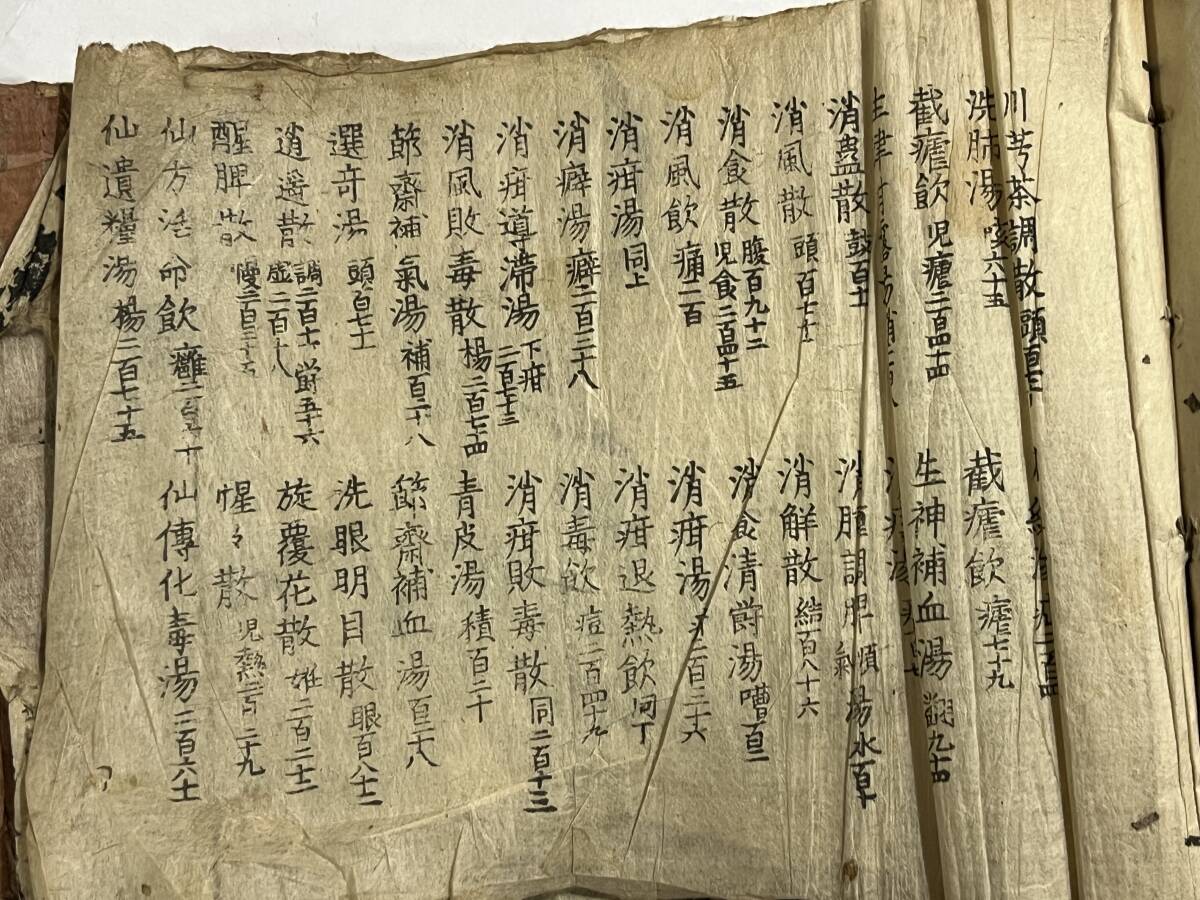 川芎茶調散 頭百七十
洗肺湯 咳六十五 截瘧飲 瘧七十九
截瘧飲 児瘧二百四十四 生神補血湯 翻九十四
消蠱散 鼓百十
消風散 頭百七十 消解散 結百八十六
消食散 腹百九十二 児食二百四十五 消食清鬱湯 嘈百二
消風飲 痛二百 消疳湯 二百三十六
消疳湯 同上 消疳退熱飲 同丁
消癖湯 癖二百三十八 消毒飲 痘二百四十九
消疳導滞湯 下疳二百七十三 消疳敗毒散 同二百十三
消風敗毒散 楊二百七十四 青皮湯 積百二十
節齋補氣湯 補百二十八 節齋補血湯 百二十八
選竒湯 頭百七十 洗眼明目散 眼百八十二
逍遥散 調二百十一 虚二百十八 欝五十六 旋覆花散 二百二十三
醒脾散 慢二百三十五 惺々散 児熱二百二十九
仙方活命飲 癰 仙傳化毒湯 二百六十
仙遺糧湯 楊二百七十五